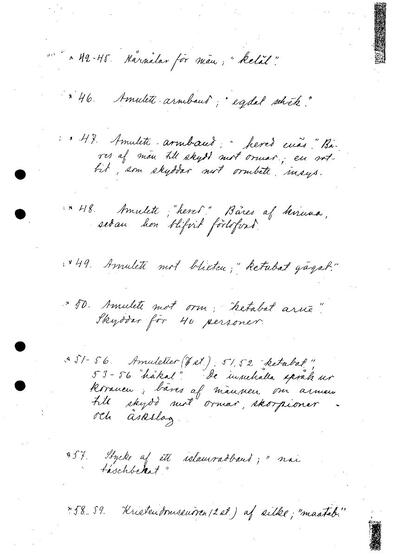 * 42-45. Hårnålar för män; "kelâl".
* 46. Amulett-armband; "egdal
* 47. Amulett-armband; "hered enâs". Bä-
res af män till skydd mot ormar; en rot-
bit, som skyddar mot ormbett, insys.
* 48. Amulett; "hered". Bäres af kvinna,
sedan hon blifvit förlofvad.
* 49. Amulett mot blixten; "ketabat
* 50. Amulett mot orm; "ketabat
Skyddar för 40 personer.
* 51-56. Amuletter (6 st), 51, 52 "ketabat",
53-56 "håkal". De innehålla språk ur
koranen; bäras af männen om armen
till skydd mot ormar, skorpioner
och åskslag.
* 57. Stycke af ett islamradband; "nai
* 58-59. Kristendomssnören (2 st) af silke; "maatab"